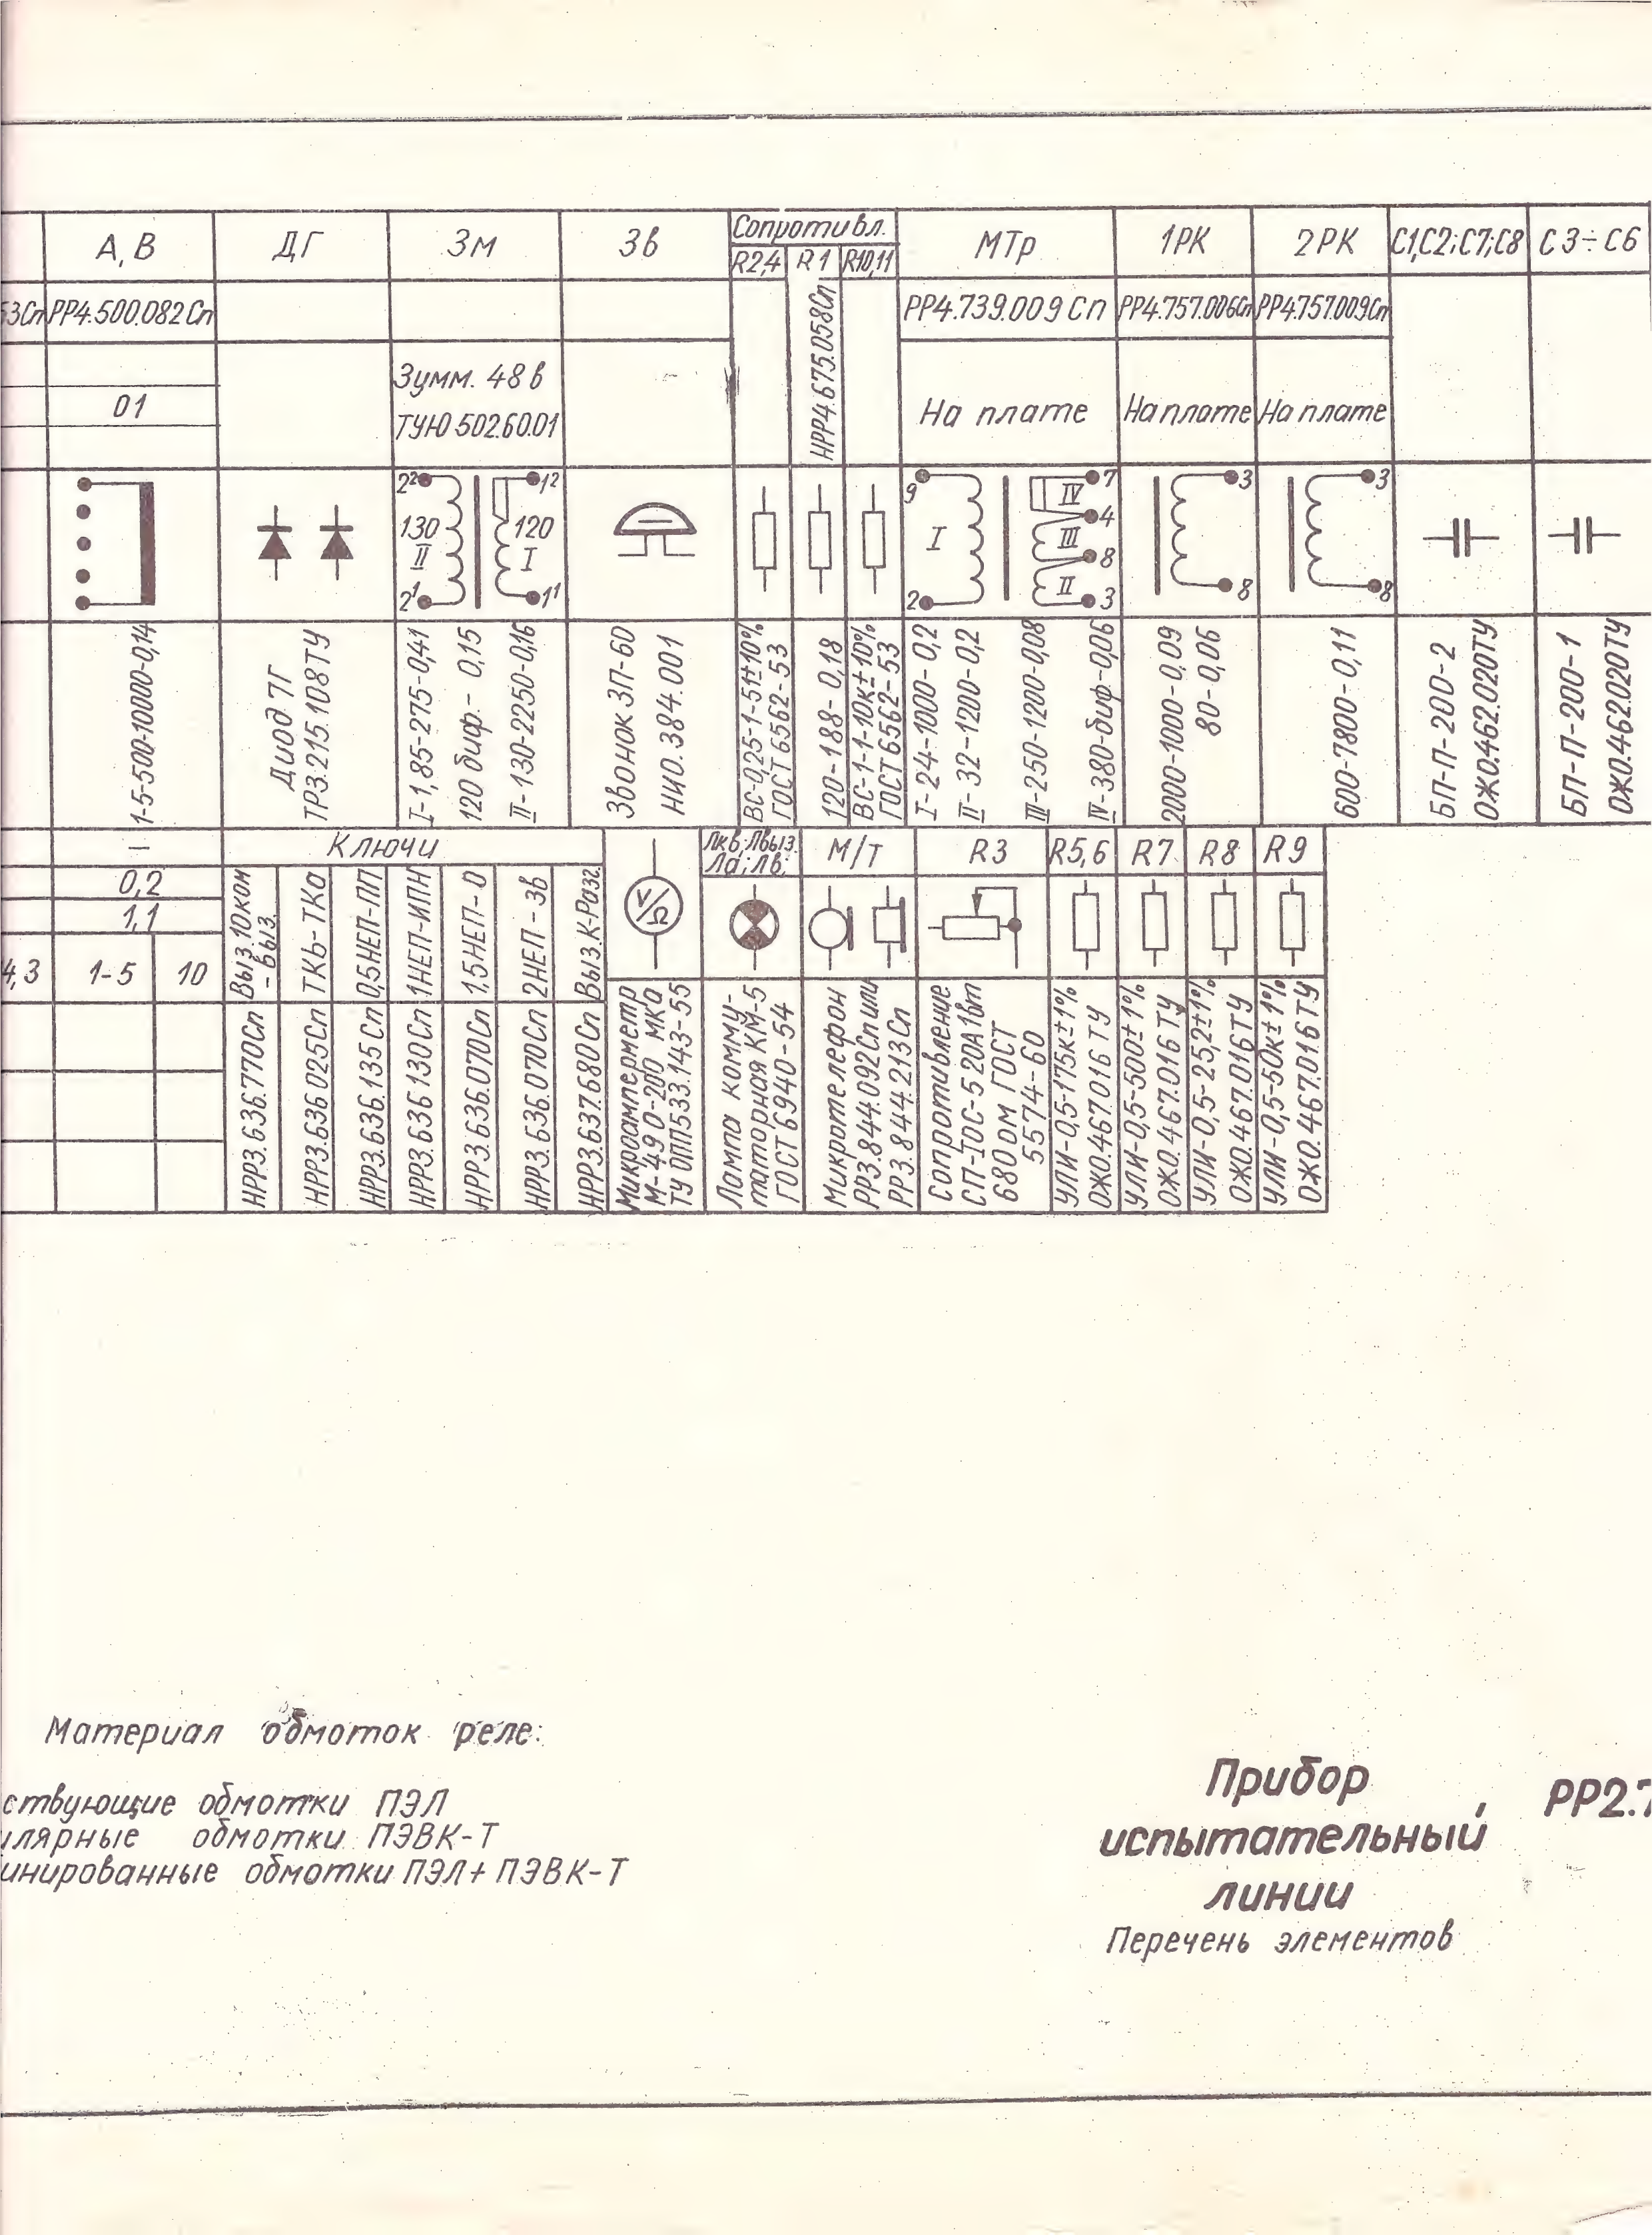 А, В
ДГ
Зм
Зв
Сопротивл.
R2,4
R1
R10,11
МТр
1РК
2РК
С1,С2;С7;С8
С3÷С6
53Сп
РР4.500.082Сп
НРР4.675.058Сп
РР4.739.009Сп
РР4.757.006Сп
РР4.757.009Сп
01
Зумм. 48в
ТУЮ.502.60.01
На плате
На плате
На плате
2²
130
II
2¹
1²
120
I
1¹
9
I
2
7
IV
4
III
8
II
3
3
8
3
8
1-5-500-10000-0,14
Диод 7Г
ТР3.215.108ТУ
I-1,85-275-0,41
120 биф.- 0,15
II-130-2250-0,16
Звонок ЗП-60
НИ0.384.001
ВС-0,25-1-51±10%
ГОСТ 6562-53
120-188-0,18
ВС-1-1-10к±10%
ГОСТ 6562-53
I-24-1000-0,2
II-32-1200-0,2
III-250-1200-0,08
IV-380-биф-0,06
2000-1000-0,09
80-0,06
600-7800-0,11
БП-П-200-2
ОЖ0.462.020ТУ
БП-П-200-1
ОЖ0.462.020ТУ
–
0,2
1,1
4,3
1-5
10
Ключи
Выз.10ком
-выз.
ТКЬ-ТКа
0,5НЕП-ПП
1НЕП-ИПН
1,5НЕП-0
2НЕП-Зв
Выз.К-Разг.
V/Ω
Лкв;Лвыз.
Ла;Лв;
М/Т
R3
R5,6
R7
R8
R9
НРР3.636.770Сп
НРР3.636.025Сп
НРР3.636.135Сп
НРР3.636.130Сп
НРР3.636.070Сп
НРР3.636.070Сп
НРР3.637.680Сп
Микроамперметр
М-49 0-200 мка
ТУ ОПП533.143-55
Лампа комму-
таторная КМ-5
ГОСТ 6940-54
Микротелефон
РР3.844.092Сп или
РР3.844.213Сп
Сопротивление
СП-IОС-5 20А 1вт
680 ом ГОСТ
5574-60
УЛИ-0,5-175к±1%
ОЖ0.467.016 ТУ
УЛИ-0,5-500±1%
ОЖ0.467.016 ТУ
УЛИ-0,5-25,2±1%
ОЖ0.467.016ТУ
УЛИ-0,5-50к±1%
ОЖ0.467.016ТУ
Материал обмоток реле:
ствующие обмотки ПЭЛ
улярные обмотки ПЭВК-Т
инированные обмотки ПЭЛ+ПЭВК-Т
Прибор
испытательный
линии
Перечень элементов
РР2.7